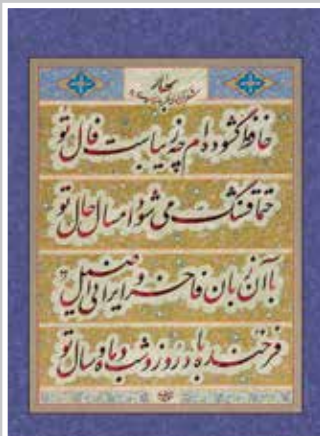 بهار
حافظ گشوده‌ام چه زیباست فال تو
حتما قشنگ می‌شود امسال حال تو
با آن زبان فاخر و ایرانی اصیل
فرخنده باد روز و شب و ماه و سال تو